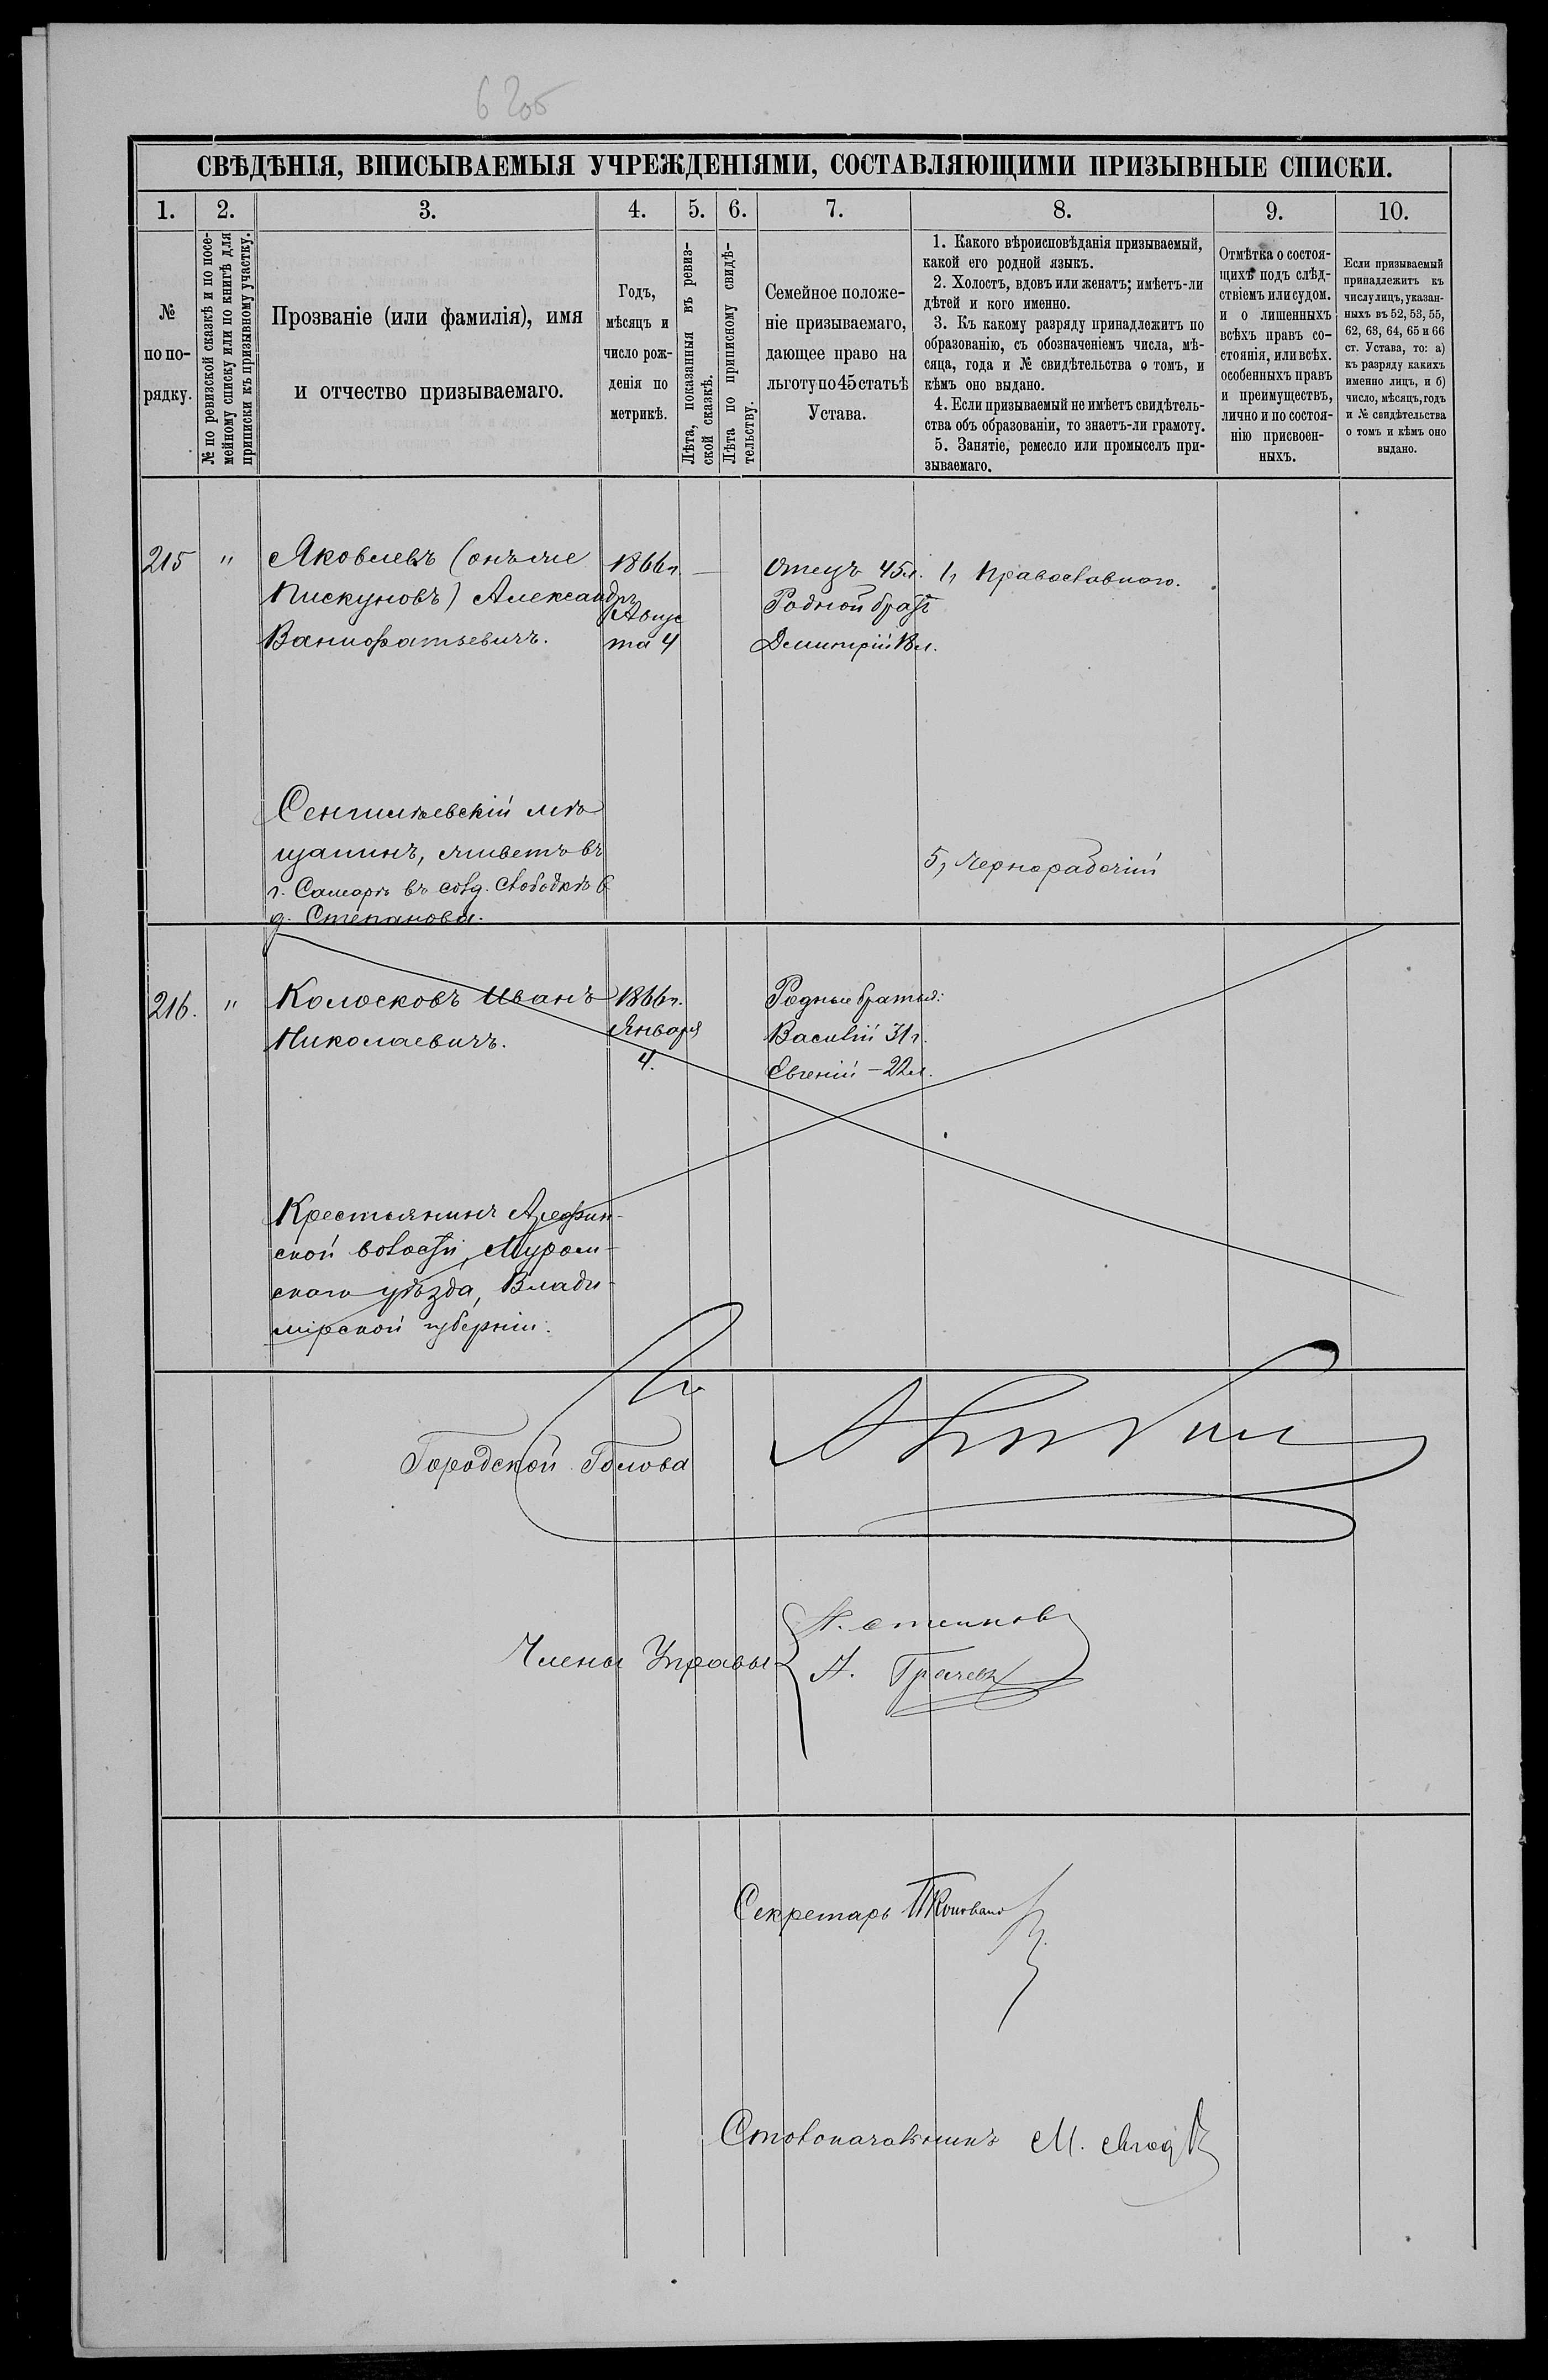 6 205
СВѢДѢНІЯ, ВПИСЫВАЕМЫЯ УЧРЕЖДЕНІЯМИ, СОСТАВЛЯЮЩИМИ ПРИЗЫВНЫЕ СПИСКИ.
1. 2. 3. 4. 5. 6. 7. 8. 9. 10.
№
по по-
рядку.
№ по ревизской сказкѣ и по посе-
мейному списку или по книгѣ для
приписки къ призывному участку.
Прозваніе (или фамилія), имя
и отчество призываемаго.
Годъ,
мѣсяцъ и
число рож-
денія по
метрикѣ.
Лѣта, показанныя въ ревиз-
ской сказкѣ.
Лѣта по приписному свидѣ-
тельству.
Семейное положе-
ніе призываемаго,
дающее право на
льготу по 45 статьѣ
Устава.
1. Какого вѣроисповѣданія призываемый,
какой его родной языкъ.
2. Холостъ, вдовъ или женатъ; имѣетъ-ли
дѣтей и кого именно.
3. Къ какому разряду принадлежитъ по
образованію, съ обозначеніемъ числа, мѣ-
сяца, года и № свидѣтельства о томъ, и
кѣмъ оно выдано.
4. Если призываемый не имѣетъ свидѣтель-
ства объ образованіи, то знаетъ-ли грамоту.
5. Занятіе, ремесло или промыселъ при-
зываемаго.
Отмѣтка о состоя-
щихъ подъ слѣд-
ствіемъ или судом.
и о лишенныхъ
всѣхъ правъ со-
стоянія, или всѣх.
особенныхъ правъ
и преимуществъ,
лично и по состоя-
нію присвоен-
ныхъ.
Если призываемый
принадлежитъ къ
числу лицъ, указан-
ныхъ въ 52, 53, 55,
62, 63, 64, 65 и 66
ст. Устава, то: а)
къ разряду какихъ
именно лицъ, и б)
число, мѣсяцъ, годъ
и № свидѣтельства
о томъ и кѣмъ оно
выдано.
215 " Яковлевъ (онъ же
Пискуновъ) Александръ
Ванифатьевичъ.
1866 г.
Авгус
та 4
Отецъ 45 л.
Родной братъ
Дмитрій 18 л.
1, Православнаго.
Сенгилѣевскій мѣ
щанинъ, живетъ въ
г. Самарѣ въ солд. слободкѣ в
д. Степановы.
5, Чернорабочій
216. " Колосковъ Иванъ
Николаевичъ.
1866 г.
Января
4.
Родные братья:
Василій 31 г.
Евгеній - 22 л.
Крестьянинъ Арефин-
ской волости, Муром-
скаго уѣзда, Влади-
мірской губерніи.
Городской Голова
Члены Управы
А. Грачевъ
Секретарь
Столоначальникъ М.